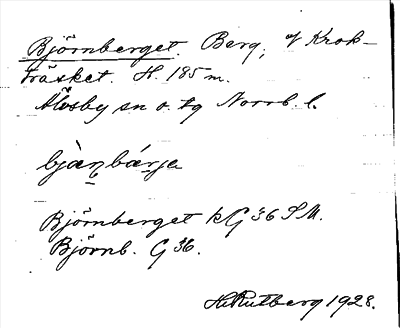 Björnberget. Berg, v Krok-
träsket. H. 185 m.
Älvsby sn o. tg Norrb. l.
bjὰn̥bάrjə
Björnberget kG 36 SM.
Björnb. G 36.
H. Rutberg 1928.